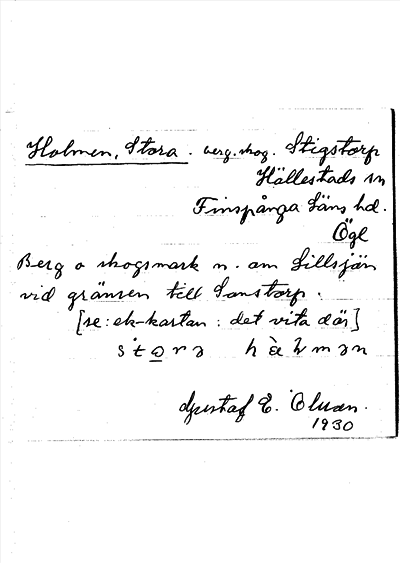 Holmen, Stora. berg. skog. Stigstorp
Hällestads sn
Finspånga läns hd.
Ögl
Berg o skogsmark n. om Lillsjön
vid gränsen till Sonstorp.
[se: ek-kartan: det vita där]
Gustaf E.
1930